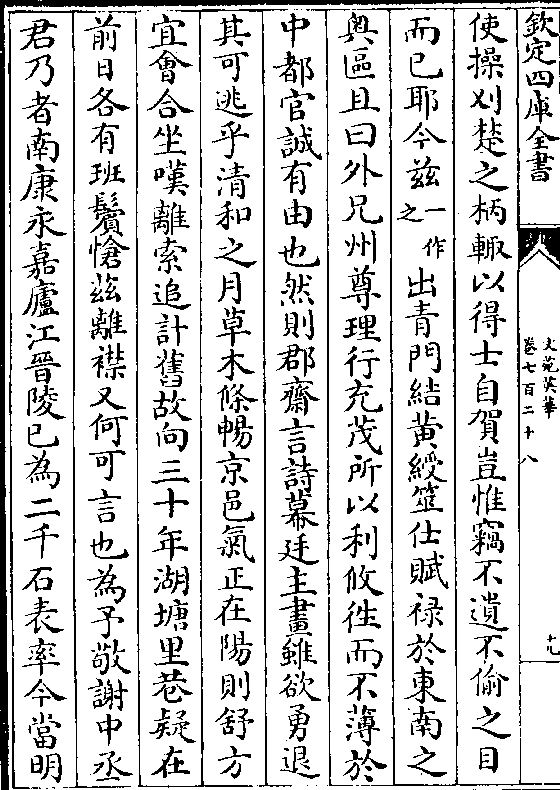 欽定四庫全書
文苑英華
卷七百二十八
十九
使操刈楚之柄輙以得士自賀豈惟竊不遺不偷之目
而已耶今兹一作之出青門結黄綬筮仕賦禄於東南之
奥區且曰外兄州尊理行充茂所以利攸徃而不薄於
中都官誠有由也然則郡齋言詩幕廷主畫雖欲勇退
其可逃乎清和之月草木條暢京邑氣正在陽則舒方
宜會合坐嘆離索追計舊故向三十年湖塘里巷疑在
前日各有班鬢愴兹離襟又何可言也為予敬謝中丞
君乃者南康永嘉廬江晉陵已為二千石表率今當明